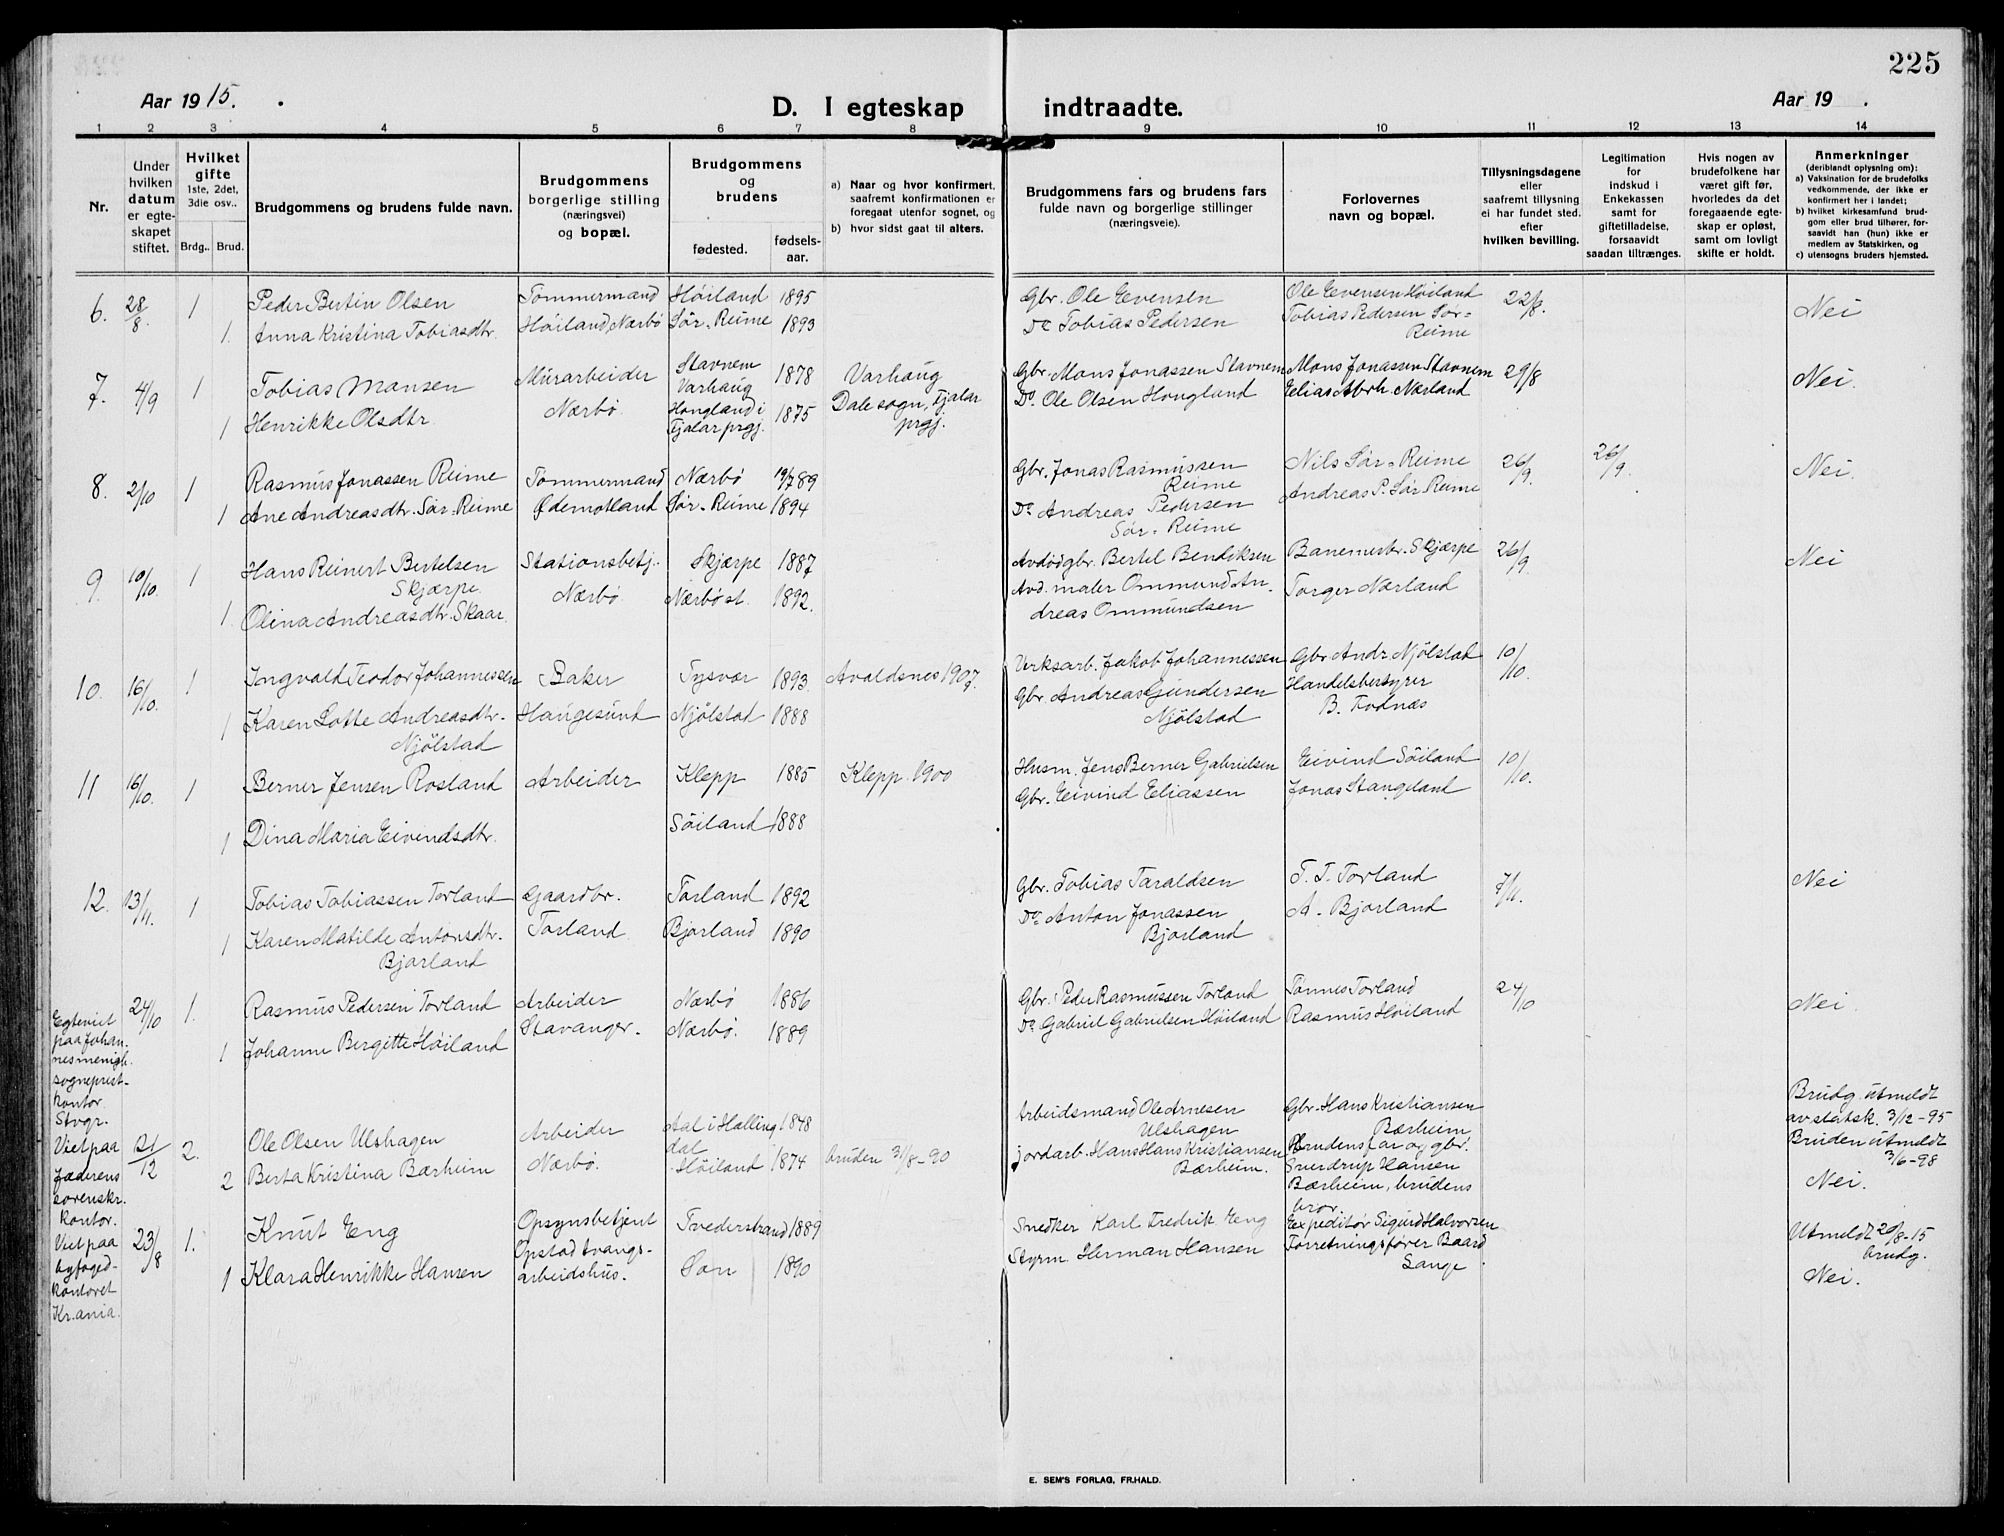 225
Aar 1915.
D. I egteskap indtraadte.
Aar 19 .
1 2 3 4 5 6 7 8 9 10 11 12 13 14
Nr.
Under hvilken datum er egteskapet stiftet.
Hvilket gifte 1ste, 2det, 3die osv..
Brdg.. Brud.
Brudgommens og brudens fulde navn.
Brudgommens borgerlige stilling (næringsvei) og bopæl.
Brudgommens og brudens
fødested.
fødselsaar.
a) Naar og hvor konfirmert, saafremt konfirmationen er foregaat utenfor sognet, og
b) hvor sidst gaat til alters.
Brudgommens fars og brudens fars fulde navn og borgerlige stillinger (næringsveie).
Forlovernes navn og bopæl.
Tillysningsdagene eller saafremt tillysning ei har fundet sted. efter hvilken bevilling.
Legitimation for indskud i Enkekassen samt for giftetilladelse, forsaavidt saadan tiltrænges.
Hvis nogen av brudefolkene har været gift før, hvorledes da det foregaaende egteskap er opløst, samt om lovligt skifte er holdt.
Anmerkninger (deriblandt oplysning om):
a) Vaksination for de brudefolks vedkommende, der ikke er konfirmert her i landet;
b) hvilket kirkesamfund brudgom eller brud tilhører, forsaavidt han (hun) ikke er medlem av Statskirken, og
c) utensogns bruders hjemsted.
6. 28/8. 1 Peder Bertin Olsen Tømmermand Høiland 1895 Gbr. Ole Evensen Ole Evensen Høiland 22/8. Nei
1. Anna Kristina Tobiasdtr. Høiland Nærbø Sør-Reime 1893 Do Tobias Pedersen Tobias Pedersen Sør-Reime
7. 4/9 1 Tobias Monsen Murarbeider Stavnem Varhaug 1878 Varhaug Gbr. Mons Jonassen Stavnem Mons Jonassen Stavnem 29/8 Nei.
1 Henrikke Olsdtr. Nærbø Hongland i Fjalar prgj. 1875 Dale sogn, Fjalar prgj. Do. Ole Olsen Hongland Elias Abrh. Nærland
8. 2/10 1 Rasmus Jonassen Reime Tømmermand Nærbø 19/7 89 Gbr. Jonas Rasmussen Reime Nils Sør-Reime 26/9. 26/9. Nei.
1 Ane Andreasdtr. Sør-Reime Ødemotland Sør-Reime 1894 Do Andreas Pedersen Sør-Reime Andreas P. Sør Reime
9. 10/10. 1 Hans Reinert Bertelsen Skjærpe. Stationsbetj. Skjærpe 1887 Avdød gbr. Bertel Bendiksen Banemestr. Skjærpe 26/9. Nei
1. Olina Andreasdtr. Skaar. Nærbø Nærbø st. 1892. Avd. maler Ommund Andreas Ommundsen Torger Nærland
10. 16/10. 1 Ingvald Teodor Johannessen Baker Tysvær 1893. Avaldsnes 1907. Verksarb. Jakob Johannessen Gbr. Andr. Njølstad 10/10.
1 Karen Lotte Andreasdtr. Njølstad Haugesund Njølstad 1888 Gbr. Andreas Gundersen Njølstad Handelsbestyrer B. Fodnæs
11 16/10. 1 Berner Jensen Rosland Arbeider Klepp 1885 Klepp. 1900 Husm. Jens Berner Gabrielsen Eivind Søiland 10/10.
1 Dina Maria Eivindsdtr. Søiland 1888 Gbr. Eivind Eliassen Jonas Stangeland
12. 13/11. 1 Tobias Tobiassen Torland Gaardbr. Torland 1892 Gbr. Tobias Taraldsen T. T. Torland 7/11. Nei
1 Karen Matilde Antonsdtr. Bjorland Torland Bjorland 1890 Do. Anton Jonassen Bjorland A. Bjorland
Egteviet paa Johannesmenigh. sogneprestkontor Stvgr.
24/10 1. Rasmus Pedersen Torland Arbeider Nærbø 1886 Gbr. Peder Rasmussen Torland Tønnes Torland 24/10 Nei
1 Johanne Bergitte Høiland Stavanger. Nærbø. 1889 Do Gabriel Gabrielsen Høiland Rasmus Høiland
Viet paa Jæderens sorenskr. kontor.
21/12 2. Ole Olsen Ulshagen Arbeider Aal i Hallingdal 1848 Arbeidsmand Ole Arnesen Ulshagen Gbr. Hans Kristiansen Bærheim Brudg. utmeldt av statsk. 3/12-95
2 Berta Kristina Bærheim Nærbø. Høiland 1874 bruden 31/8-90 jordarb. Hans Hans Kristiansen Bærheim. Brudens far og gbr. Sverdrup Hansen Bærheim, brudens bror. Bruden utmeldt 3/6-98 Nei.
Viet paa byfogedkontoret Kr.ania.
23/8 1. Knut Eng Opsynsbetjent Tvedestrand 1889 Snedker Karl Fredrik Eng Expeditør Sigurd Halvorsen Utmeldt 20/8-15 brudg.
1 Klara Henrikke Hansen Opstad tvangsarbeidshus. Son 1890 Styrm. Herman Hansen Forretningsfører Baard Lange Nei.
E. SEM'S FORLAG, FR.HALD.